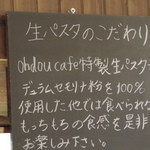 生パスタのこだわり
ohdou cafe特製生パスタ
デュラムセモリナ粉を100%
使用した他では食べられな
もっちもちの食感を是非
お楽しみ下さい。